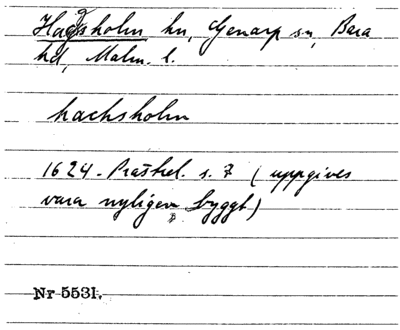 Hagsholm hn, Genarp sn, Bara
hd, Malm. l.
hachsholm
1624. Prästrel. s. 7 (uppgives
vara nyligen byggt)
Nr 5531.